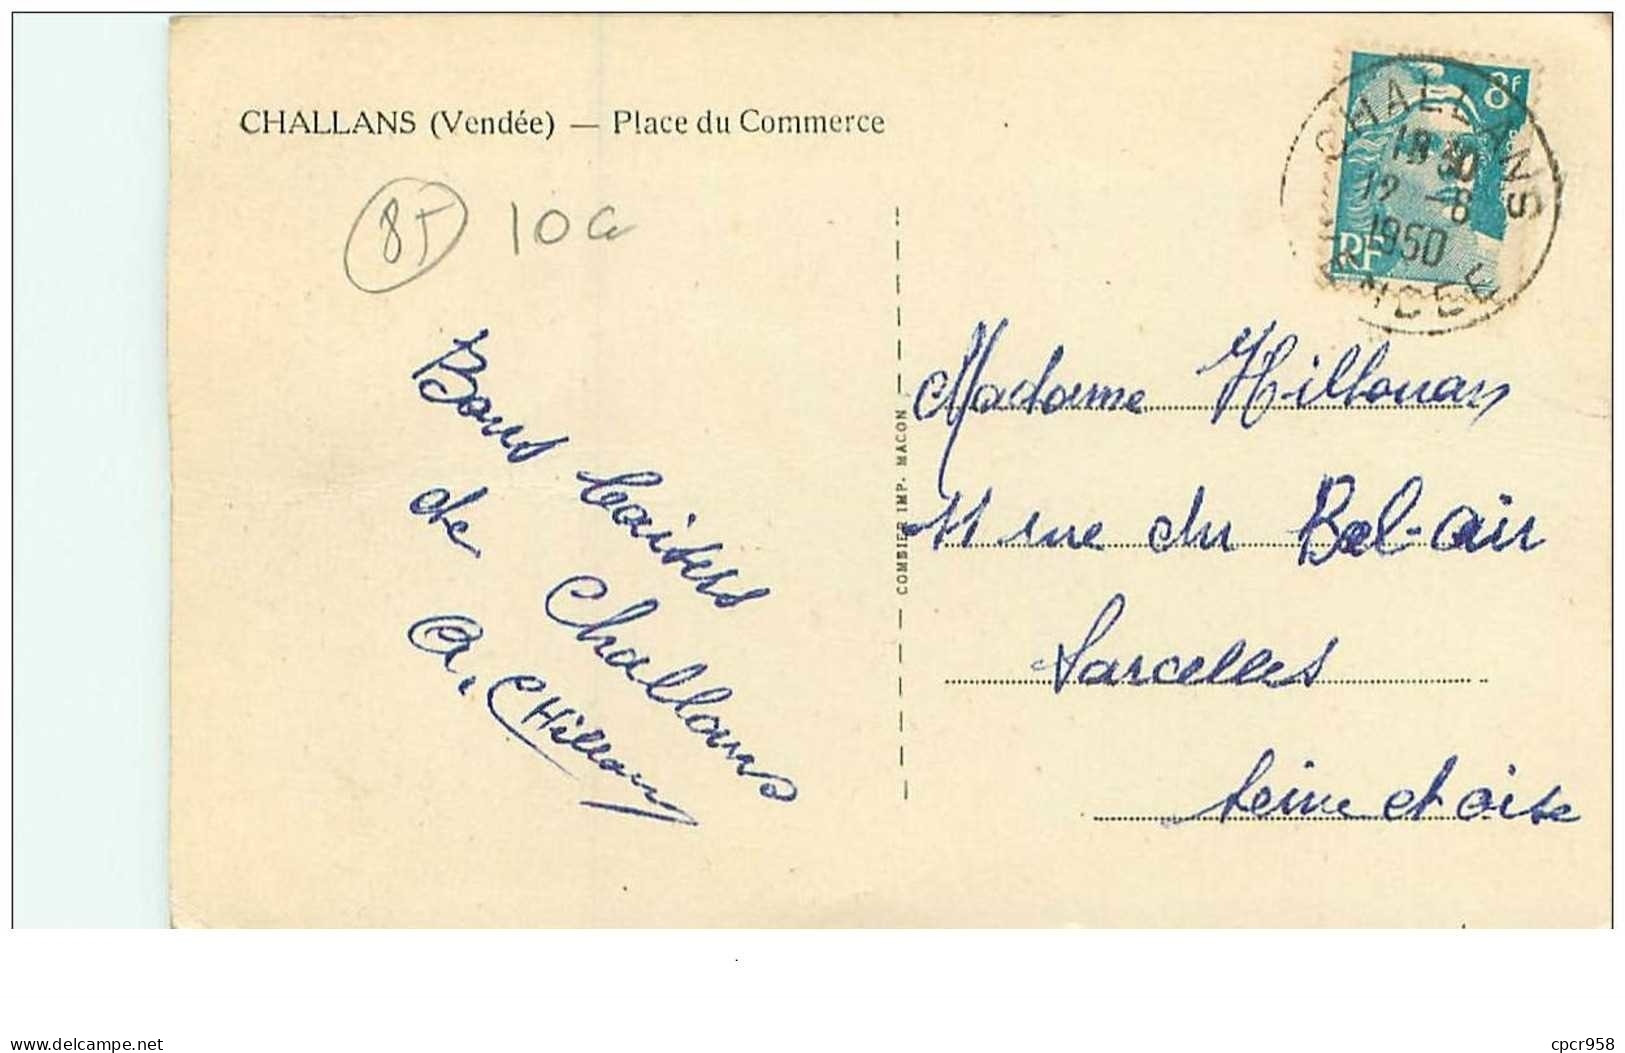 CHALLANS (Vendée) — Place du Commerce
8F
CHALLANS
18 30
12 -8
1950
RF
VENDEE
85 10
Bons baisers
de Challans
A.
COMBIER IMP. MACON
Madame Hillouan
11 rue du Bel-air
Sarcelles
Seine et oise
delcampe.net
cpcr958